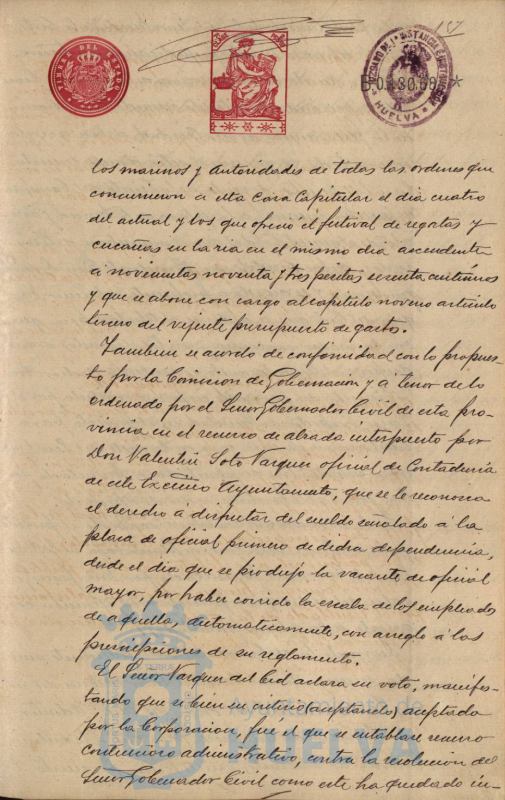 157
TIMBRE DEL ESTADO
CLASE
JUZGADO DE 1ª INSTANCIA É INSTRUCCION
HUELVA
los marinos y autoridades de todas las ordenes que
concurrieron a esta Casa Capitular el dia cuatro
del actual y los que ofreció el festival de regatas y
cucañas en la ria en el mismo dia ascendente
á novecientas noventa y tres pesetas sesenta centimos
y que se abone con cargo al capitulo noveno articulo
tercero del vijente presupuesto de gastos.
Tambien se acordó de conformidad con lo propues-
to por la Comision de Gobernacion y á tenor de lo
ordenado por el Señor Gobernador Civil de esta pro-
vincia en el recurso de alzada interpuesto por
Don Valentin Soto Vazquez oficial de Contaduria
de este Excmo Ayuntamiento, que se le reconozca
el derecho á disfrutar del sueldo señalado á la
plaza de oficial primero de dicha dependencia,
desde el dia que se produjo la vacante de oficial
mayor, por haber corrido la escala de los empleados
de aquella, automaticamente, con arreglo á las
prescripciones de su reglamento.
El Señor Vazquez del Cid aclara su voto, manifes-
tando que si bien su criterio (aceptando) aceptada
por la Corporacion, fué el que se entablase recurso
contencioso administrativo, contra la resolucion del
Señor Gobernador Civil como este ha quedado in-
TERRA
Ayuntamiento de
HUELVA